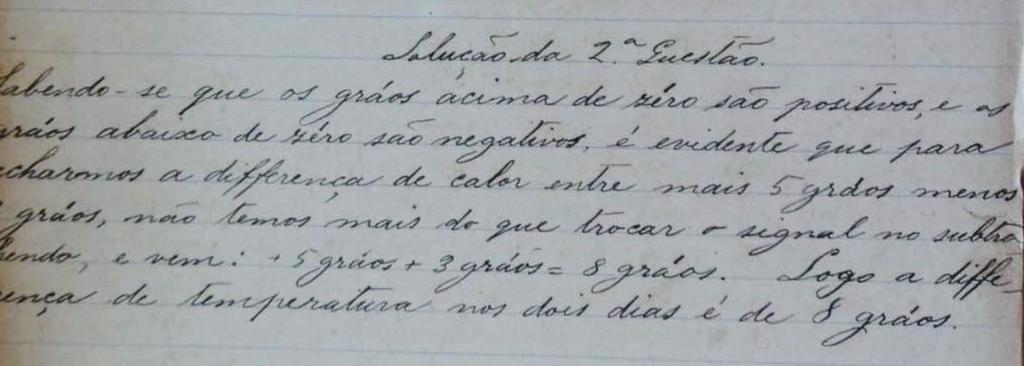 Solução da 2.ª Questão.
Sabendo-se que os gráos acima de zéro são positivos, e os
gráos abaixo de zéro são negativos, é evidente que para
acharmos a differença de calor entre mais 5 gráos menos
gráos, não temos mais do que trocar o signal no subtra
hendo, e vem: +5 gráos + 3 gráos = 8 gráos. Logo a diffe-
rença de temperatura nos dois dias é de 8 gráos.